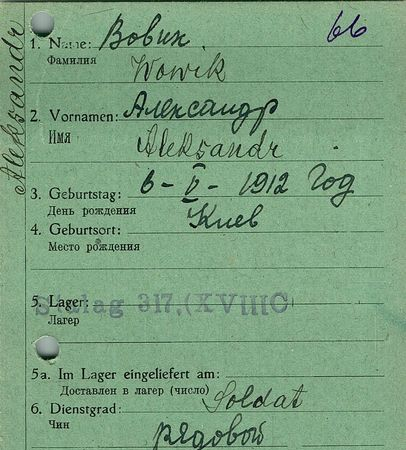 66
Aleksandr
1. Name: Вовик
Фамилия Wowik
2. Vornamen: Александр
Имя Aleksandr
3. Geburtstag: 6-V-1912 Год
День рождения
4. Geburtsort: Киев
Место рождения
5. Lager: Stalag 317, (XVIII C)
Лагерь
5a. Im Lager eingeliefert am:
Доставлен в лагерь (число)
6. Dienstgrad: Soldat
Чин рядовой